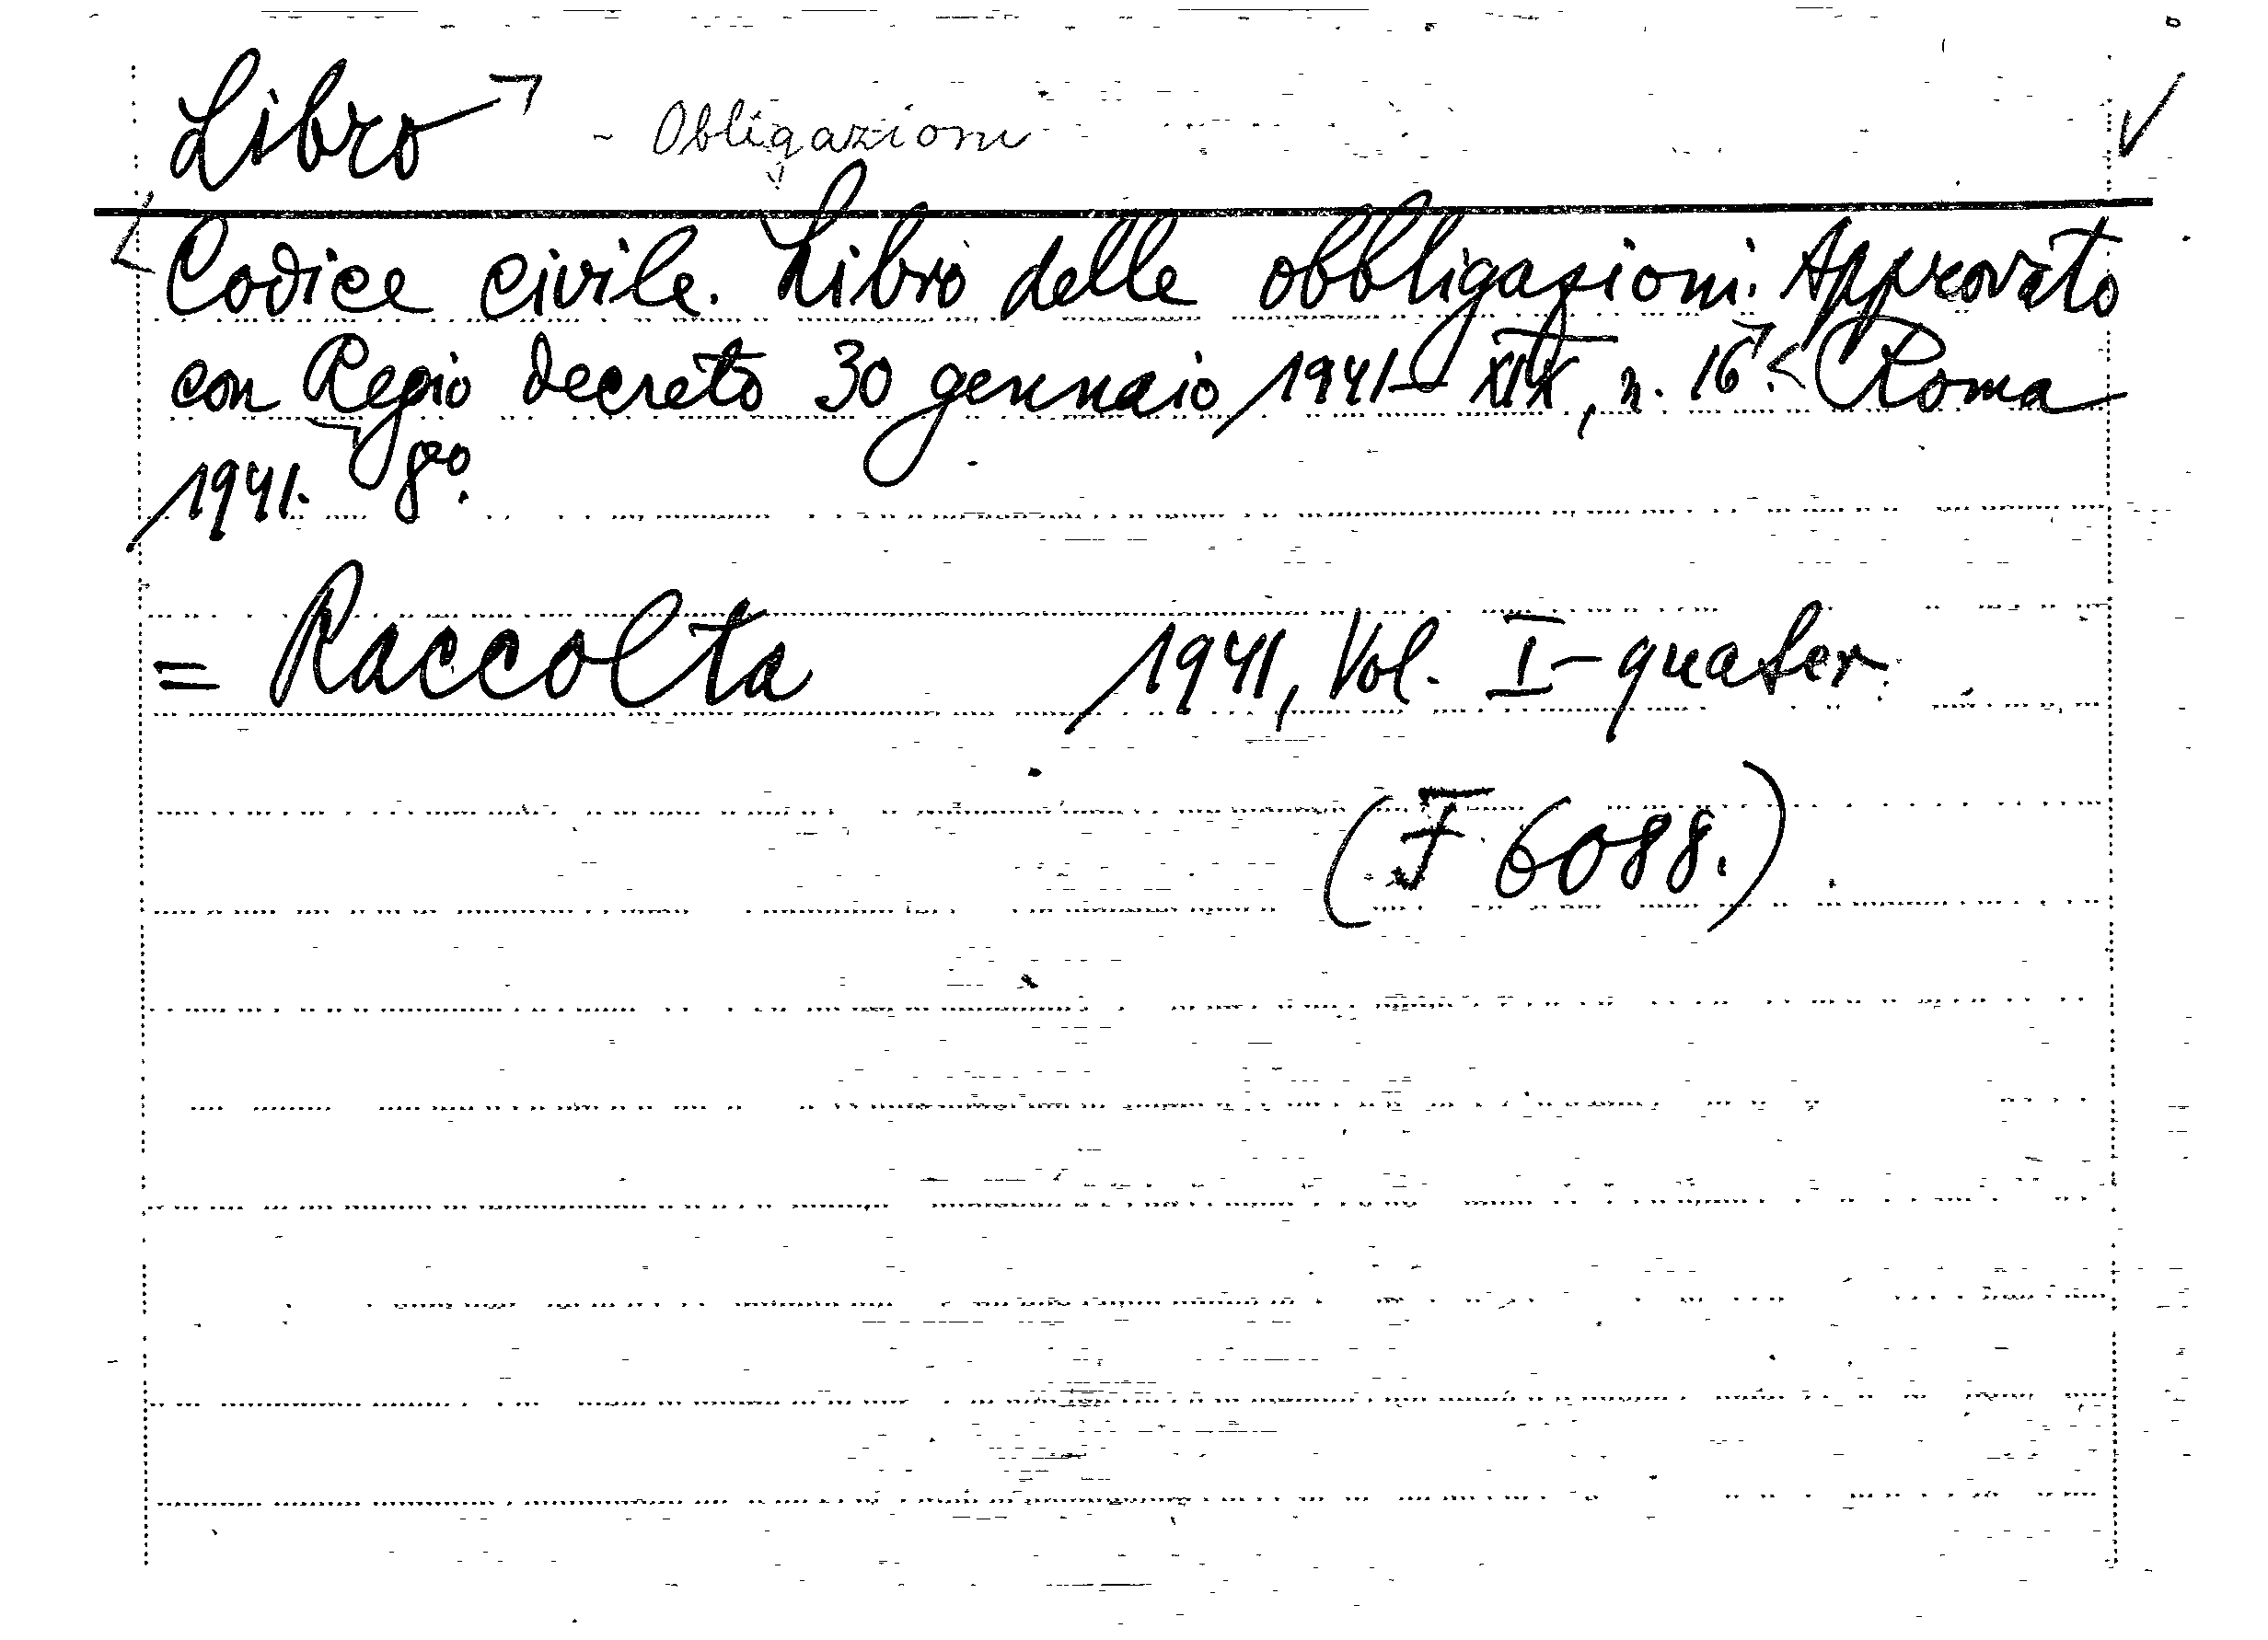 Libro - Obligazioni
Codice civile. Libro delle obbligazioni. Approvato
con Regio decreto 30 gennaio 1941-XIX, n. 16. Roma
1941. 8vo.
= Raccolta 1941, Vol. I-quater.
(F 6088.)